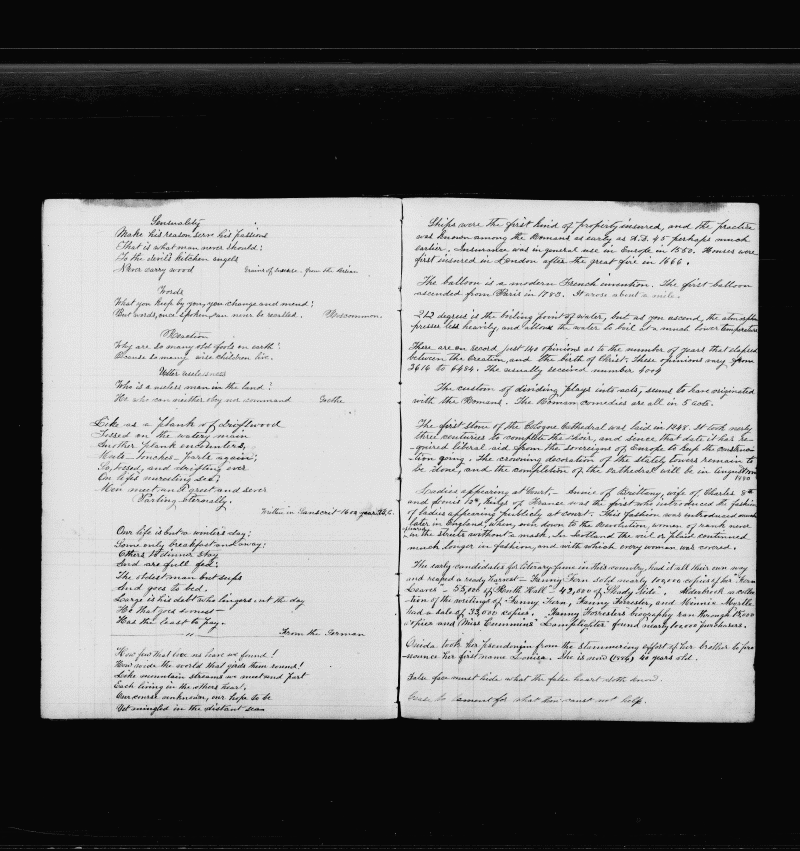 Sensuality
Make his reason serve his passions
That is what man never should;
In the devil's kitchen angels
Never carry wood
from the
Words
What you keep by you, you change and mend;
But words, once spoken, can never be recalled. Roscommon.
Reaction
Why are so many old fools on earth?
Because so many wise children live.
Utter uselessness
Who is a useless man in the land?
He who can neither obey nor command Goethe
Like as a plank of driftwood
Tossed on the watery main
Another plank encounters,
Meets – touches – parts again;
So, tossed, and drifting ever
On life's unresting sea,
Men meet, and greet and sever
Parting eternally.
Written in Sanscrit 1600 years B.C.
Our life is but a winter's day;
Some only breakfast and away;
Others to dinner stay
And are full fed;
The oldest man but sups
And goes to bed.
Large is his debt who lingers out the day
He that goes soonest
Has the least to pay.
From the German
How few that love us have we found!
How wide the world that girds them round!
Like mountain streams we meet and part
Each living in the others heart,
Our course unknown, our hope to be
Yet mingled in the distant sea
Ships were the first kind of property insured, and the practice
was known among the Romans as early as A.D. 45 perhaps much
earlier. Insurance was in general use in Europe in 1550. Houses were
first insured in London after the great fire in 1666.
The balloon is a modern French invention. The first balloon
ascended from Paris in 1783. It arose about a mile.
212 degrees is the boiling point of water, but as you ascend, the atmosphere
presses less heavily, and allows the water to boil at a much lower temperature
There are on record just 140 opinions as to the number of years that elapsed
between the Creation, and the birth of Christ. These opinions vary from
3616 to 6484. The usually received number 4004
The custom of dividing plays into acts, seems to have originated
with the Romans. The Roman comedies are all in 5 acts.
The first stone of the Cologne Cathedral was laid in 1248. It took nearly
three centuries to complete the choir, and since that date it has re-
-quired liberal aid from the sovereigns of Europe to keep the construc-
-tion going. The crowning decoration of the stately towers remain to
be done, and the completion of the Cathedral will be in August
1880
Ladies appearing at Court. – Annie of Brittany, wife of Charles 8th
and Louis 12th, Kings of France was the first who introduced the fashion
of ladies appearing publicly at court. This fashion was introduced much
later in England, when, even down to the Revolution, women of rank never
in the streets without a mask. In Scotland the veil or plaid continued
much longer in fashion, and with which every woman was covered.
The early candidates for literary fame in this country, had it all their own way
and reaped a ready harvest – Fanny Fern sold nearly 100,000 copies of her "Fern
Leaves" – 55,000 of "Ruth Hall" – 42,000 of "Shady Side". a collec
-tion of the writings of Fanny Fern, Fanny Forrester, and Minnie Myrtle
had a sale of 33,000 copies, Fanny Forresters biography ran through 15,000
copies and Miss Cummins' "Lamplighter" found nearly 100,000 purchasers.
Ouida took her pseudonym from the stammering effort of her brother to pro
nounce her first name Louisa. She is now 40 years old.
False face must hide what the false heart doth know.
Cease to lament for what thou canst not help.